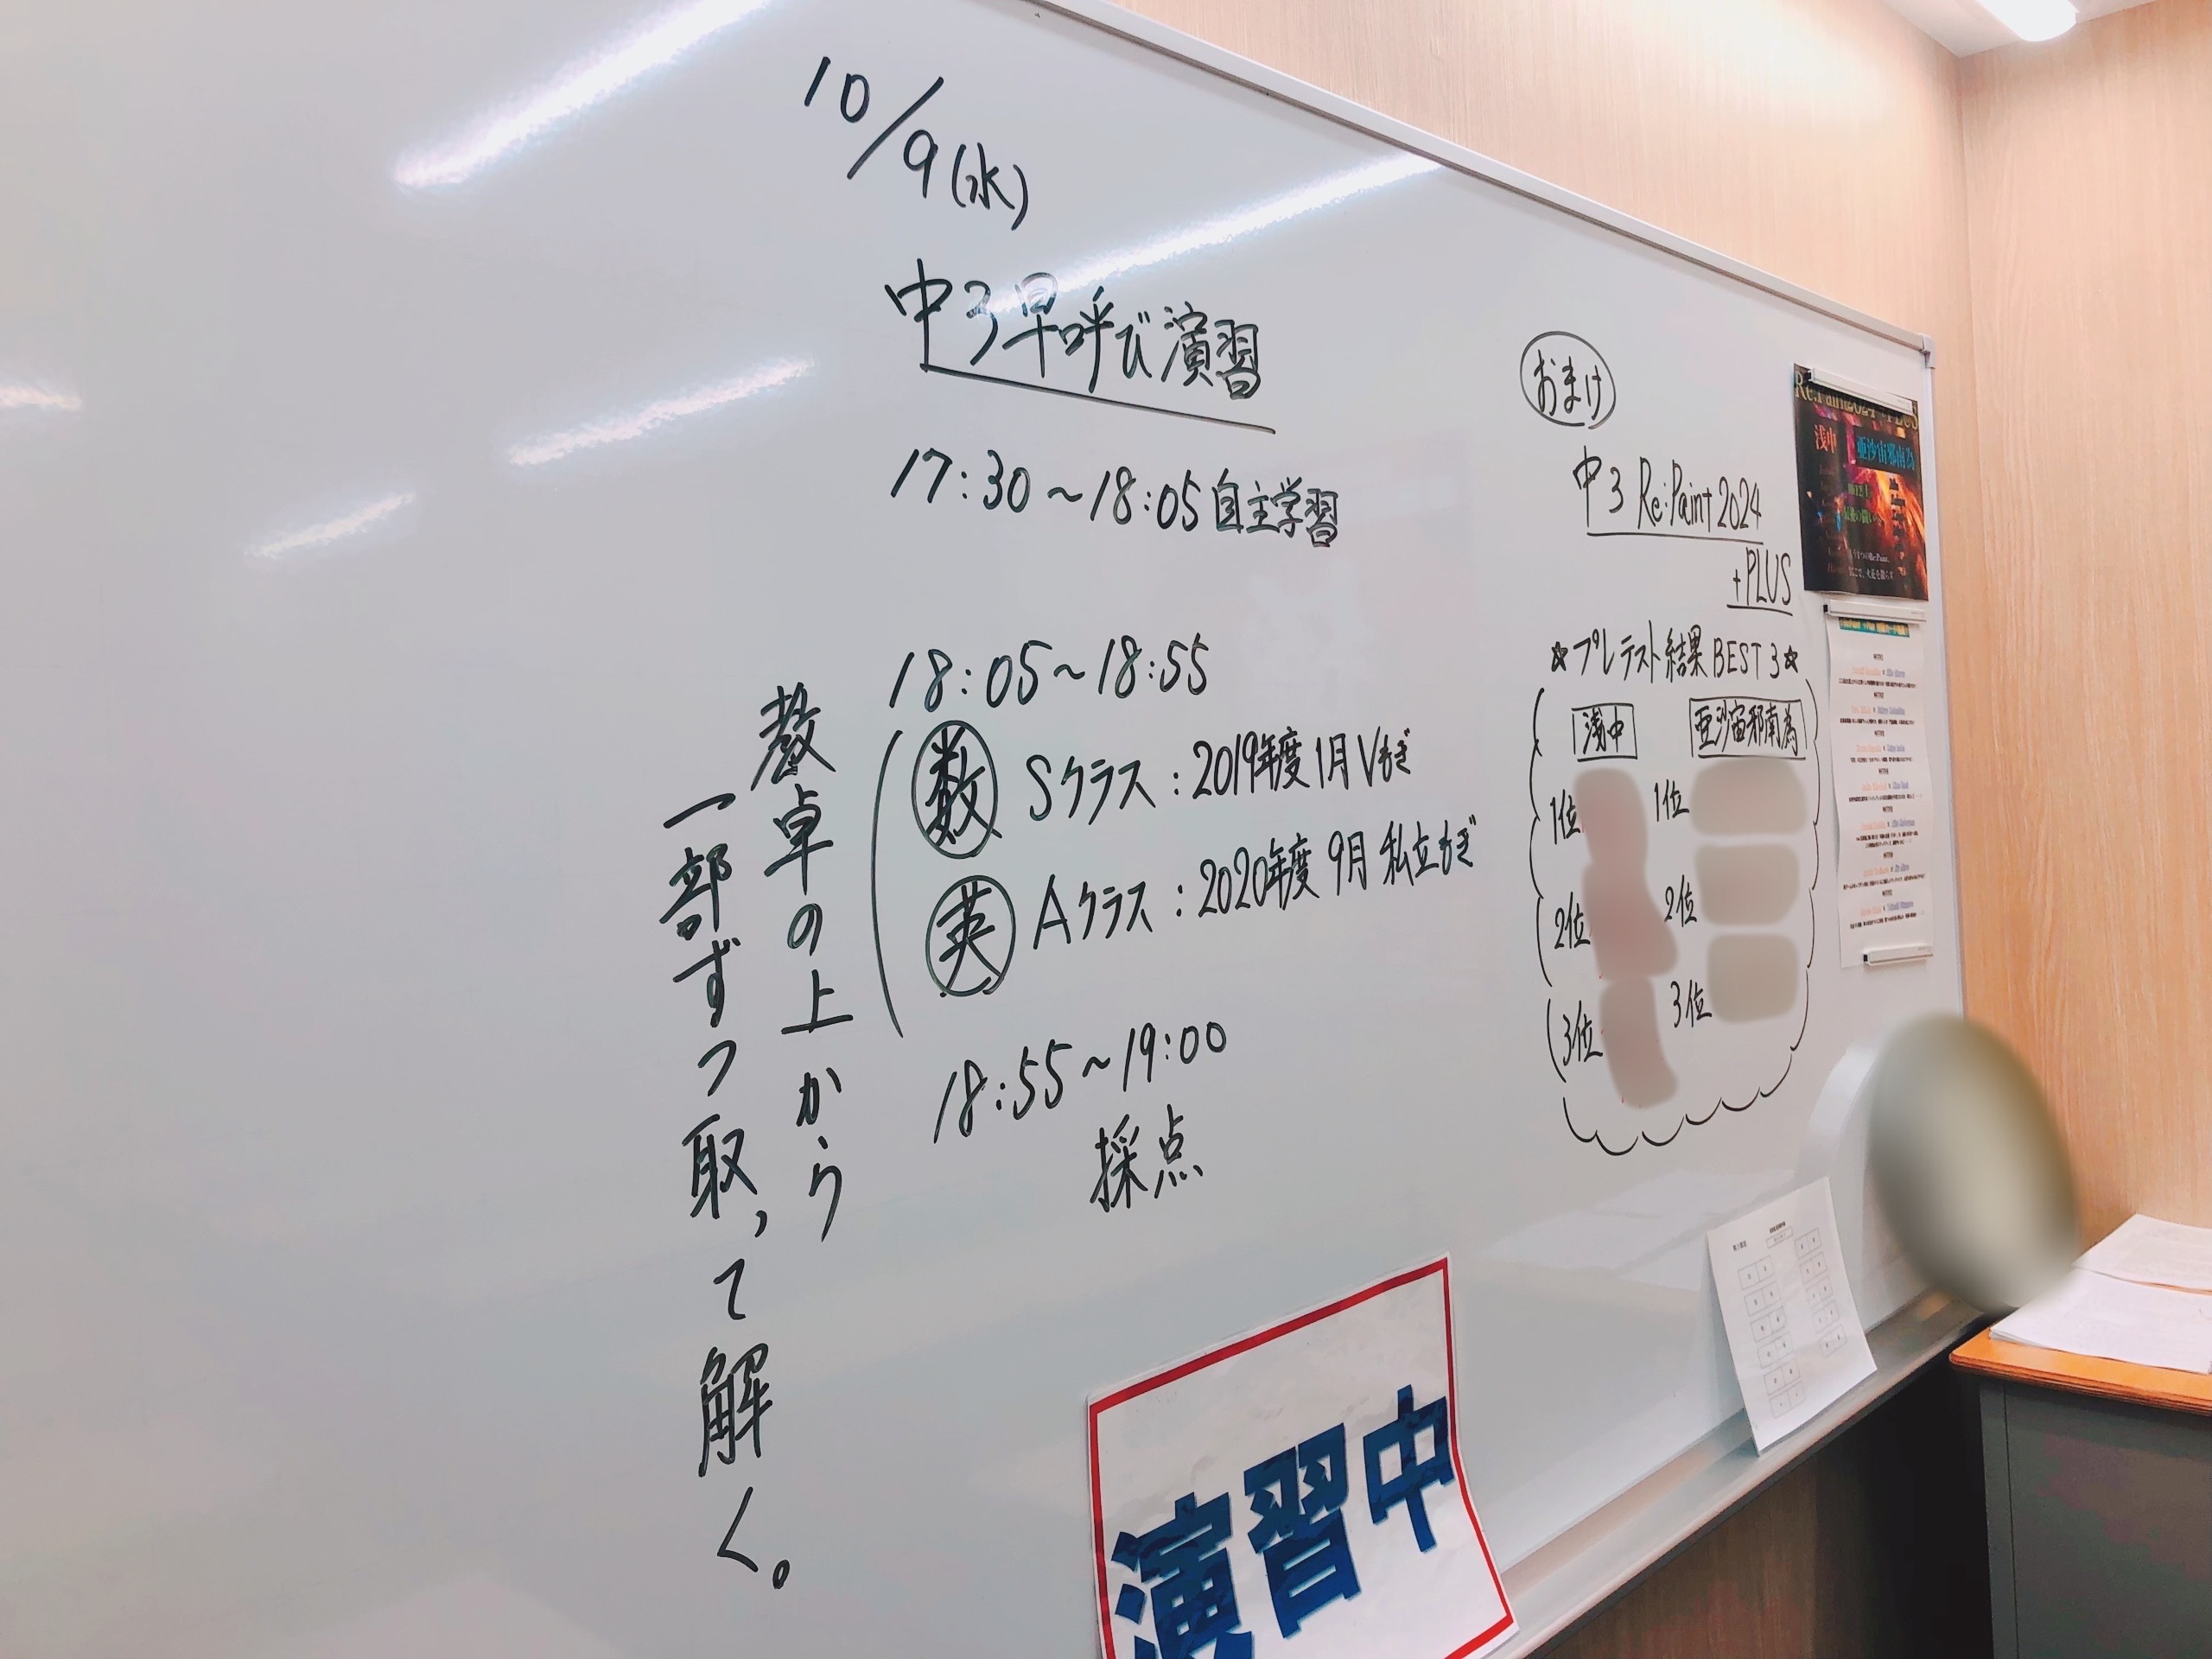 10/9(水)
中3早呼び演習
17:30～18:05 自主学習
18:05～18:55
数 Sクラス：2019年度1月Vもぎ
英 Aクラス：2020年度9月私立もぎ
教卓の上から
一部ずつ取って解く。
18:55～19:00
採点
おまけ
中3 Re:Paint 2024
+PLUS
☆プレテスト結果 BEST 3☆
浅中 亜沙宙邪南為
1位 1位
2位 2位
3位 3位
Re:Paint2024 +PLUS
浅中 亜沙宙邪南為
演習中